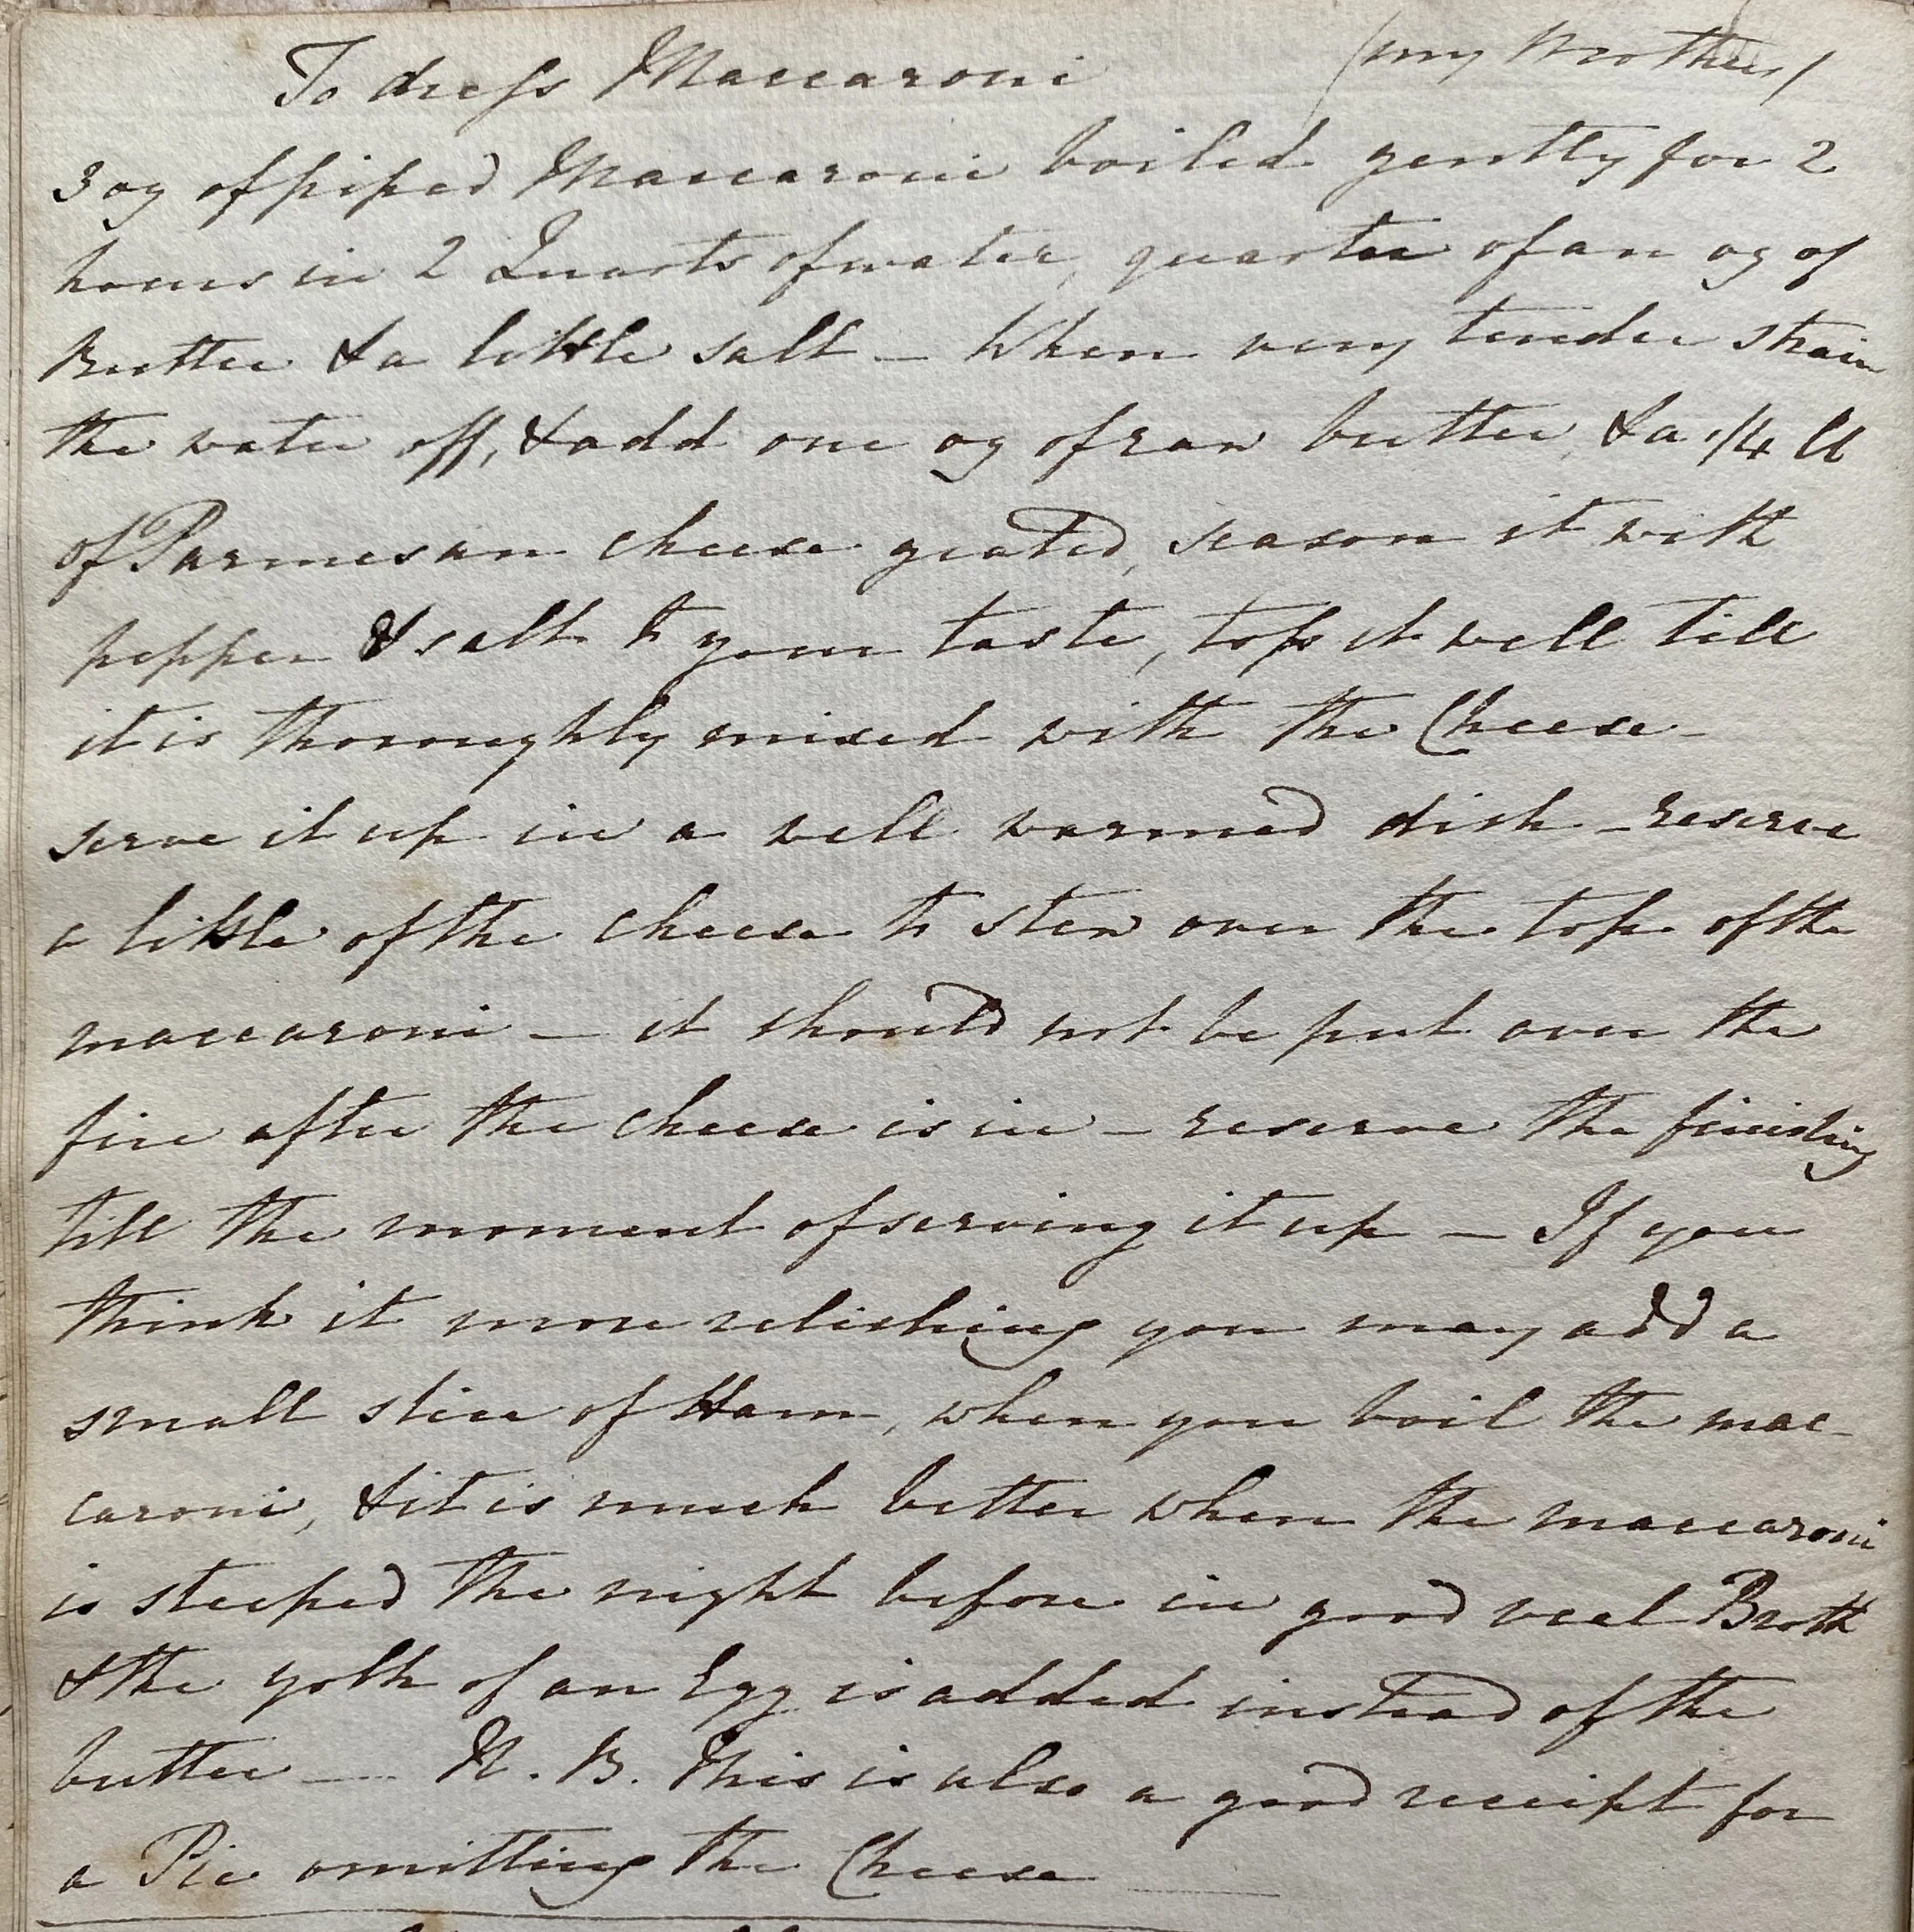 To dress Maccaroni (my Brother)
3 oz of piped Maccaroni boiled gently for 2
hours in 2 Quarts of water, quarter of an oz of
Butter & a little salt – When very tender strain
the water off, & add one oz of raw butter, & a 1/4 lb
of Parmesan cheese grated, season it with
pepper & salt to your taste, toss it well till
it is thoroughly mixed with the Cheese –
serve it up in a well warmed dish – reserve
a little of the cheese to stew over the top of the
maccaroni – it should not be put over the
fire after the cheese is in – reserve the finishing
till the moment of serving it up – If you
think it more relishing you may add a
small slice of Ham, when you boil the mac-
caroni, & it is much better when the maccaroni
is steeped the night before in good veal Broth
& the yolk of an Egg is added instead of the
butter — N.B. This is also a good receipt for
a Pie omitting the Cheese —